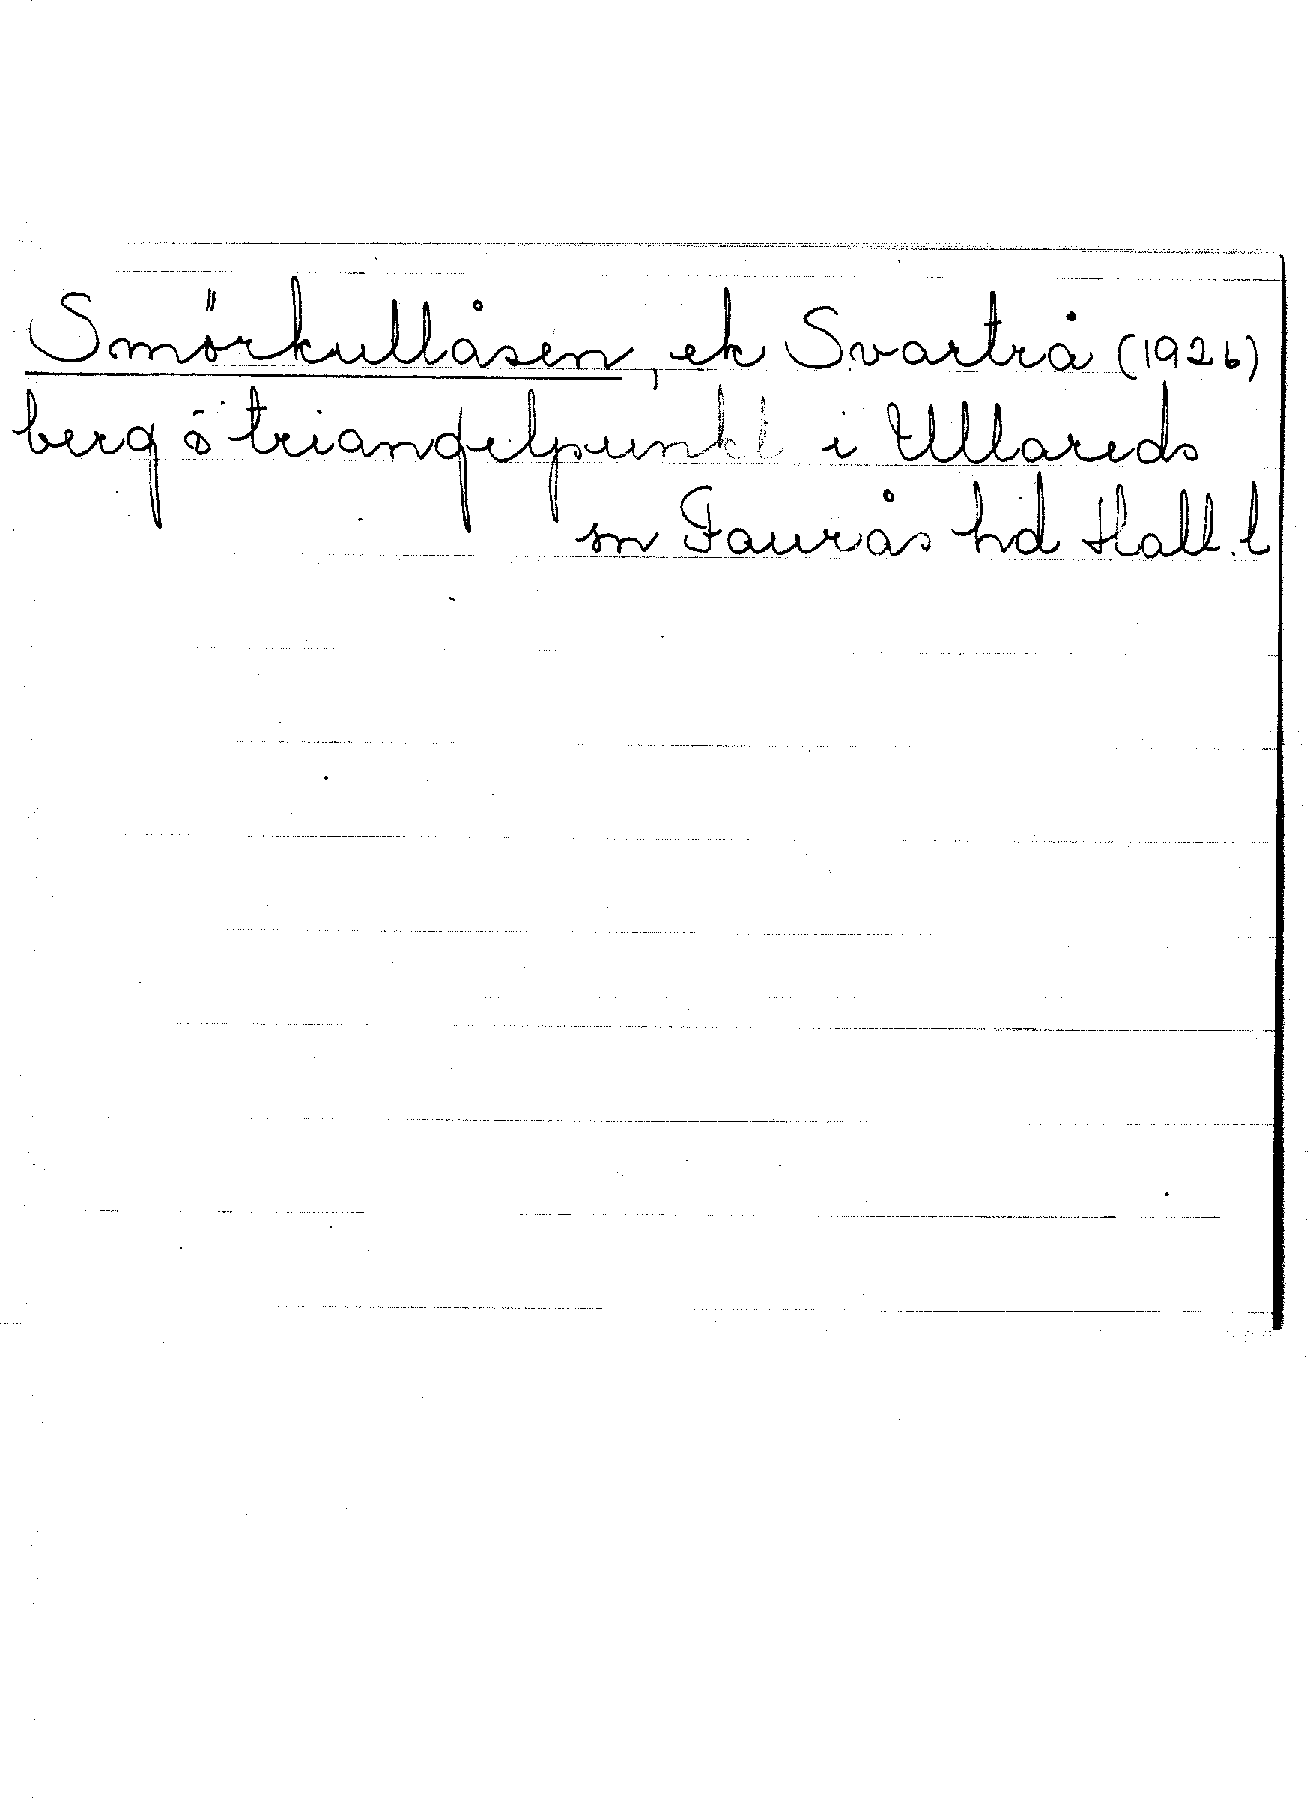 Smörkullåsen, ek Svartrå (1926)
berg o triangelpunkt i Ullareds
sn Faurås hd Hall. l